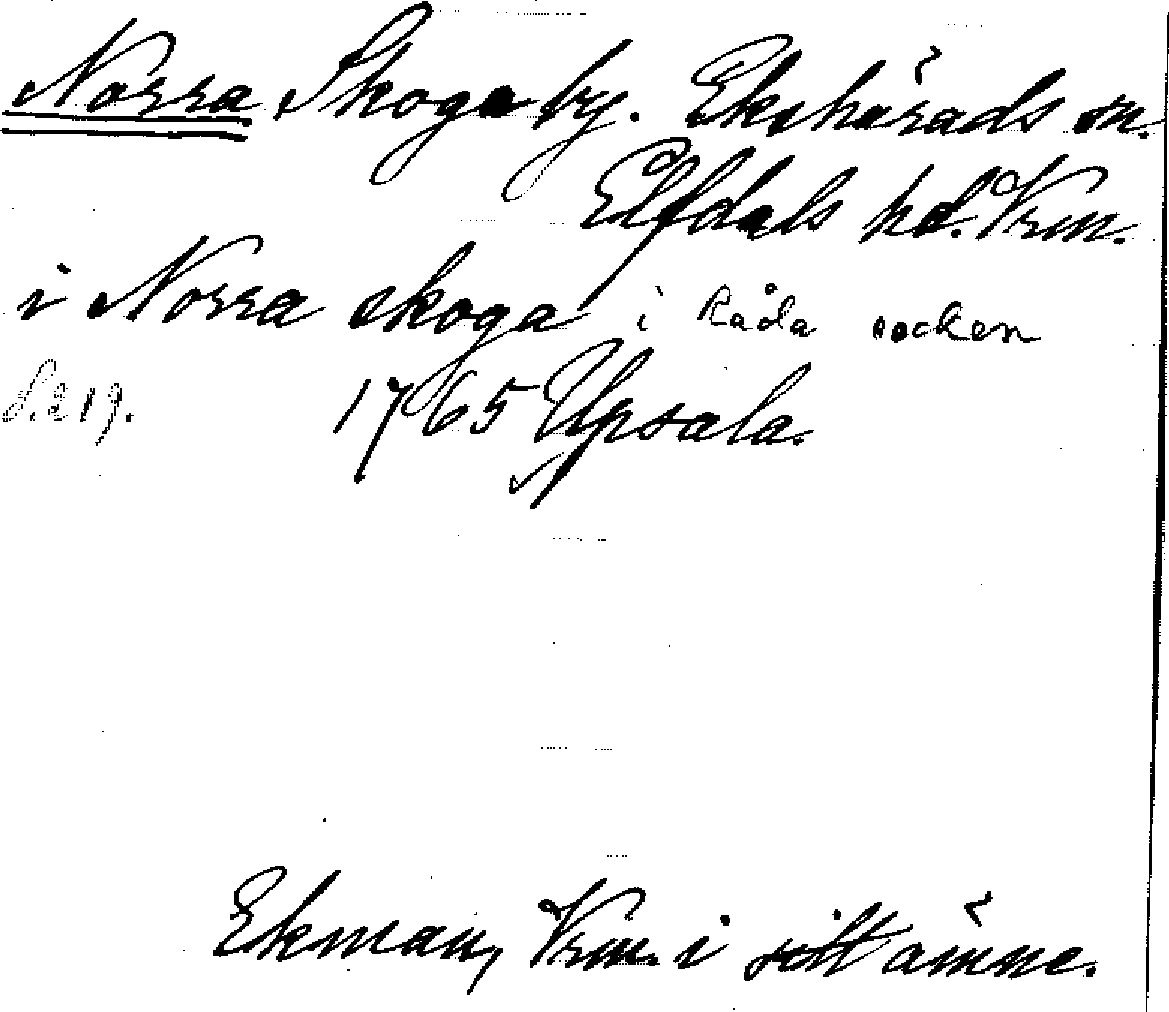 Norra Skoga by. Ekshärads sn.
Elfdals hd. Vrm.
i Norra skoga i Råda socken
s. 219. 1765 Upsala.
Ekman, Vrm. i sitt ämne.